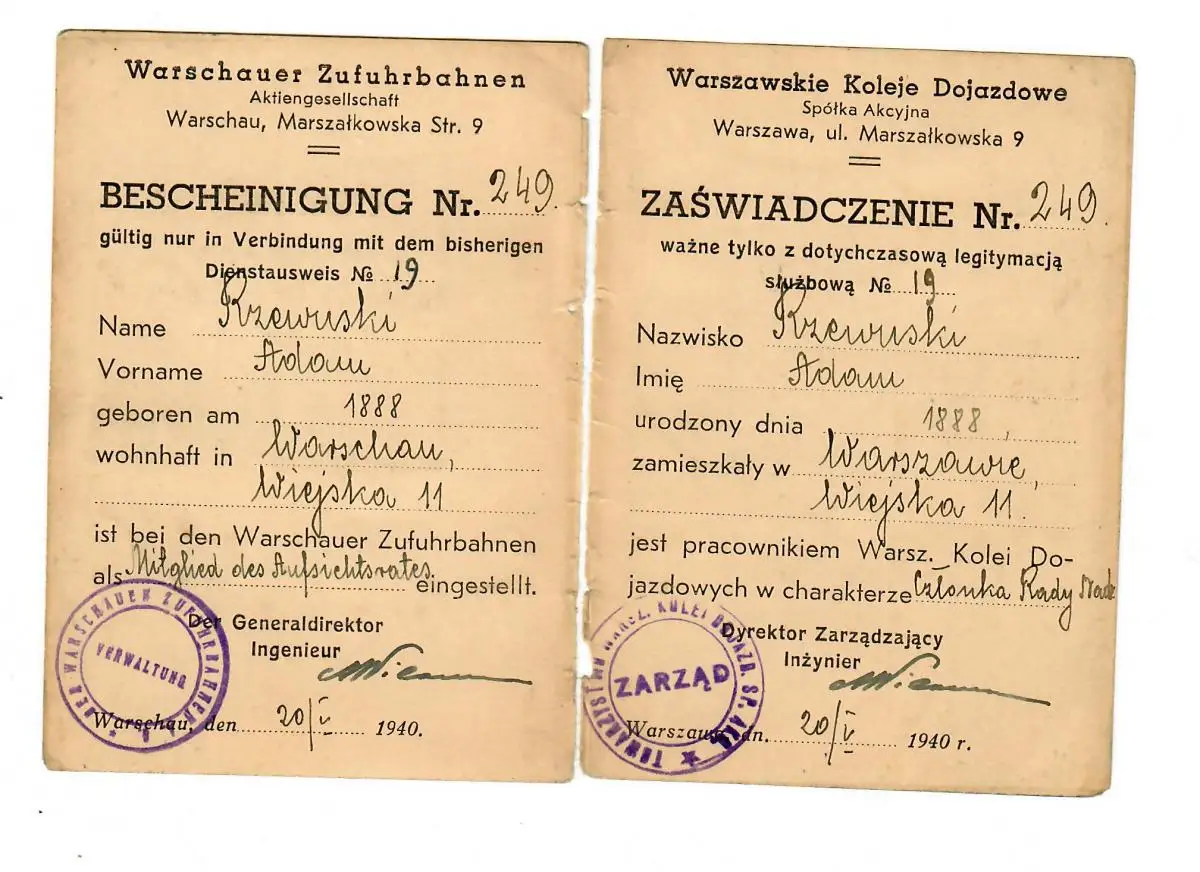 Warschauer Zufuhrbahnen
Aktiengesellschaft
Warschau, Marszałkowska Str. 9
BESCHEINIGUNG Nr. 249.
gültig nur in Verbindung mit dem bisherigen
Dienstausweis № 19
Name Rzewuski
Vorname Adam
geboren am 1888
wohnhaft in Warschau,
Wiejska 11
ist bei den Warschauer Zufuhrbahnen
als Mitglied des Aufsichtsrates eingestellt.
Der Generaldirektor
Ingenieur
VERWALTUNG
DER WARSCHAUER ZUFUHRBAHNEN
Warschau, den 20/V 1940.
Warszawskie Koleje Dojazdowe
Spółka Akcyjna
Warszawa, ul. Marszałkowska 9
ZAŚWIADCZENIE Nr. 249.
ważne tylko z dotychczasową legitymacją
służbową № 19
Nazwisko Rzewuski
Imię Adam
urodzony dnia 1888,
zamieszkały w Warszawie,
Wiejska 11.
jest pracownikiem Warsz. Kolei Do-
jazdowych w charakterze Członka Rady
Dyrektor Zarządzający
Inżynier
ZARZĄD
TOWARZYSTWA WARSZ. KOLEI DOJAZD. SP. AKC.
Warszawa, dn. 20/V 1940 r.